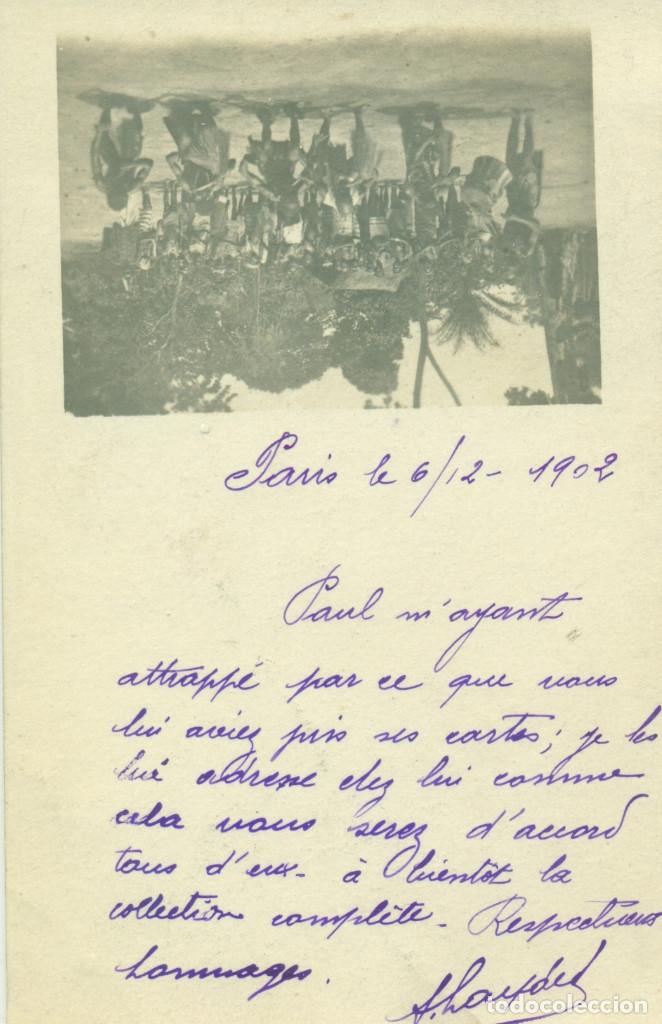 Paris le 6/12- 1902
Paul m'ayant
attrappé par ce que vous
lui aviez pris ses cartes; je les
lui adresse chez lui comme
cela vous serez d'accord
tous d'eux - à bientôt la
collection complète - Respectueux
hommages.
todocoleccion